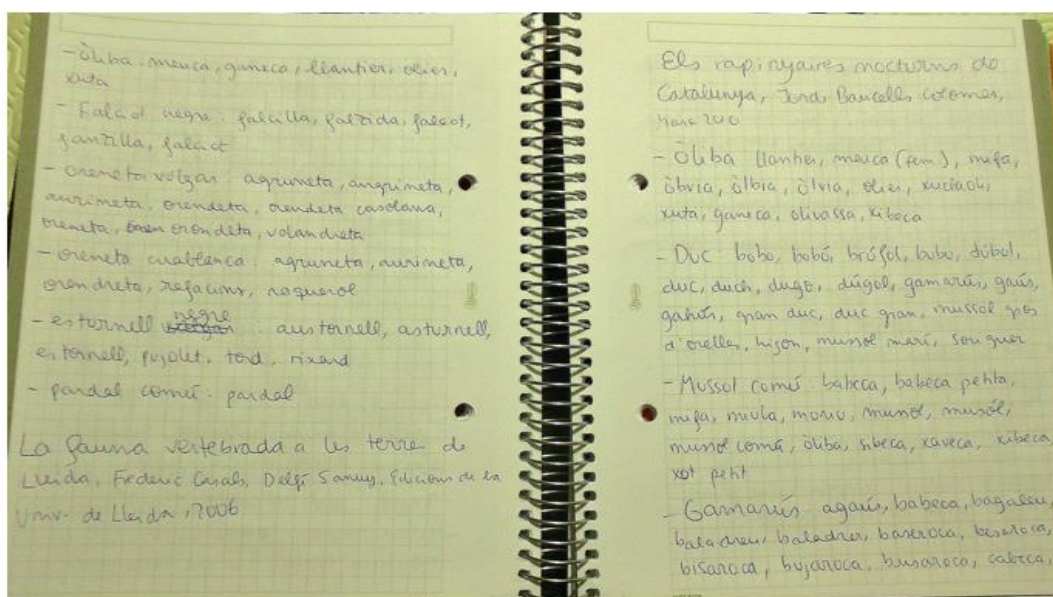 - Òliba: meuca, ganeca, llantier, olier,
xuta
- Falciot negre: falcilla, falzida, falsiot,
fanzilla, falciot
- oreneta vulgar: agruneta, angrineta,
aurineta, orendeta, orendeta casolana,
oreneta, orondeta, volandreta
- oreneta cuablanca: agruneta, aurineta,
orendreta, roquerol
- esturnell negre: austornell, asturnell,
estornell, pujolet, tord, rixard
- pardal comú: pardal
La fauna vertebrada a les terres de
Lleida, Federic Casals, Delfí Sanuy, Edicions de la
Univ. de Lleida, 2006
Els rapinyaires nocturns de
Catalunya, Jordi Baucells Colomer,
- Òliba llantier, meuca (fem), mifa,
òbvia, òlbia, òlvia, olier,
xuta, ganeca, olivassa, xibeca
- Duc bobo, bobó, brúfol, bubu, dúbol,
duc, duch, dugo, dúgol, gamarús, gaús,
gahús, gran duc, duc gran, mussol gros
d'orelles, mussol marí,
- Mussol comú babeca, babeca petita,
mifa, miula, mussol,
mussol comú, òliba, sibeca, xaveca, xibeca
xot petit
- Gamarús agaús, babeca,
baladreu, baladrer, baseroca, besaroca,
bisaroca, bujaroca, busaroca, cabeca,